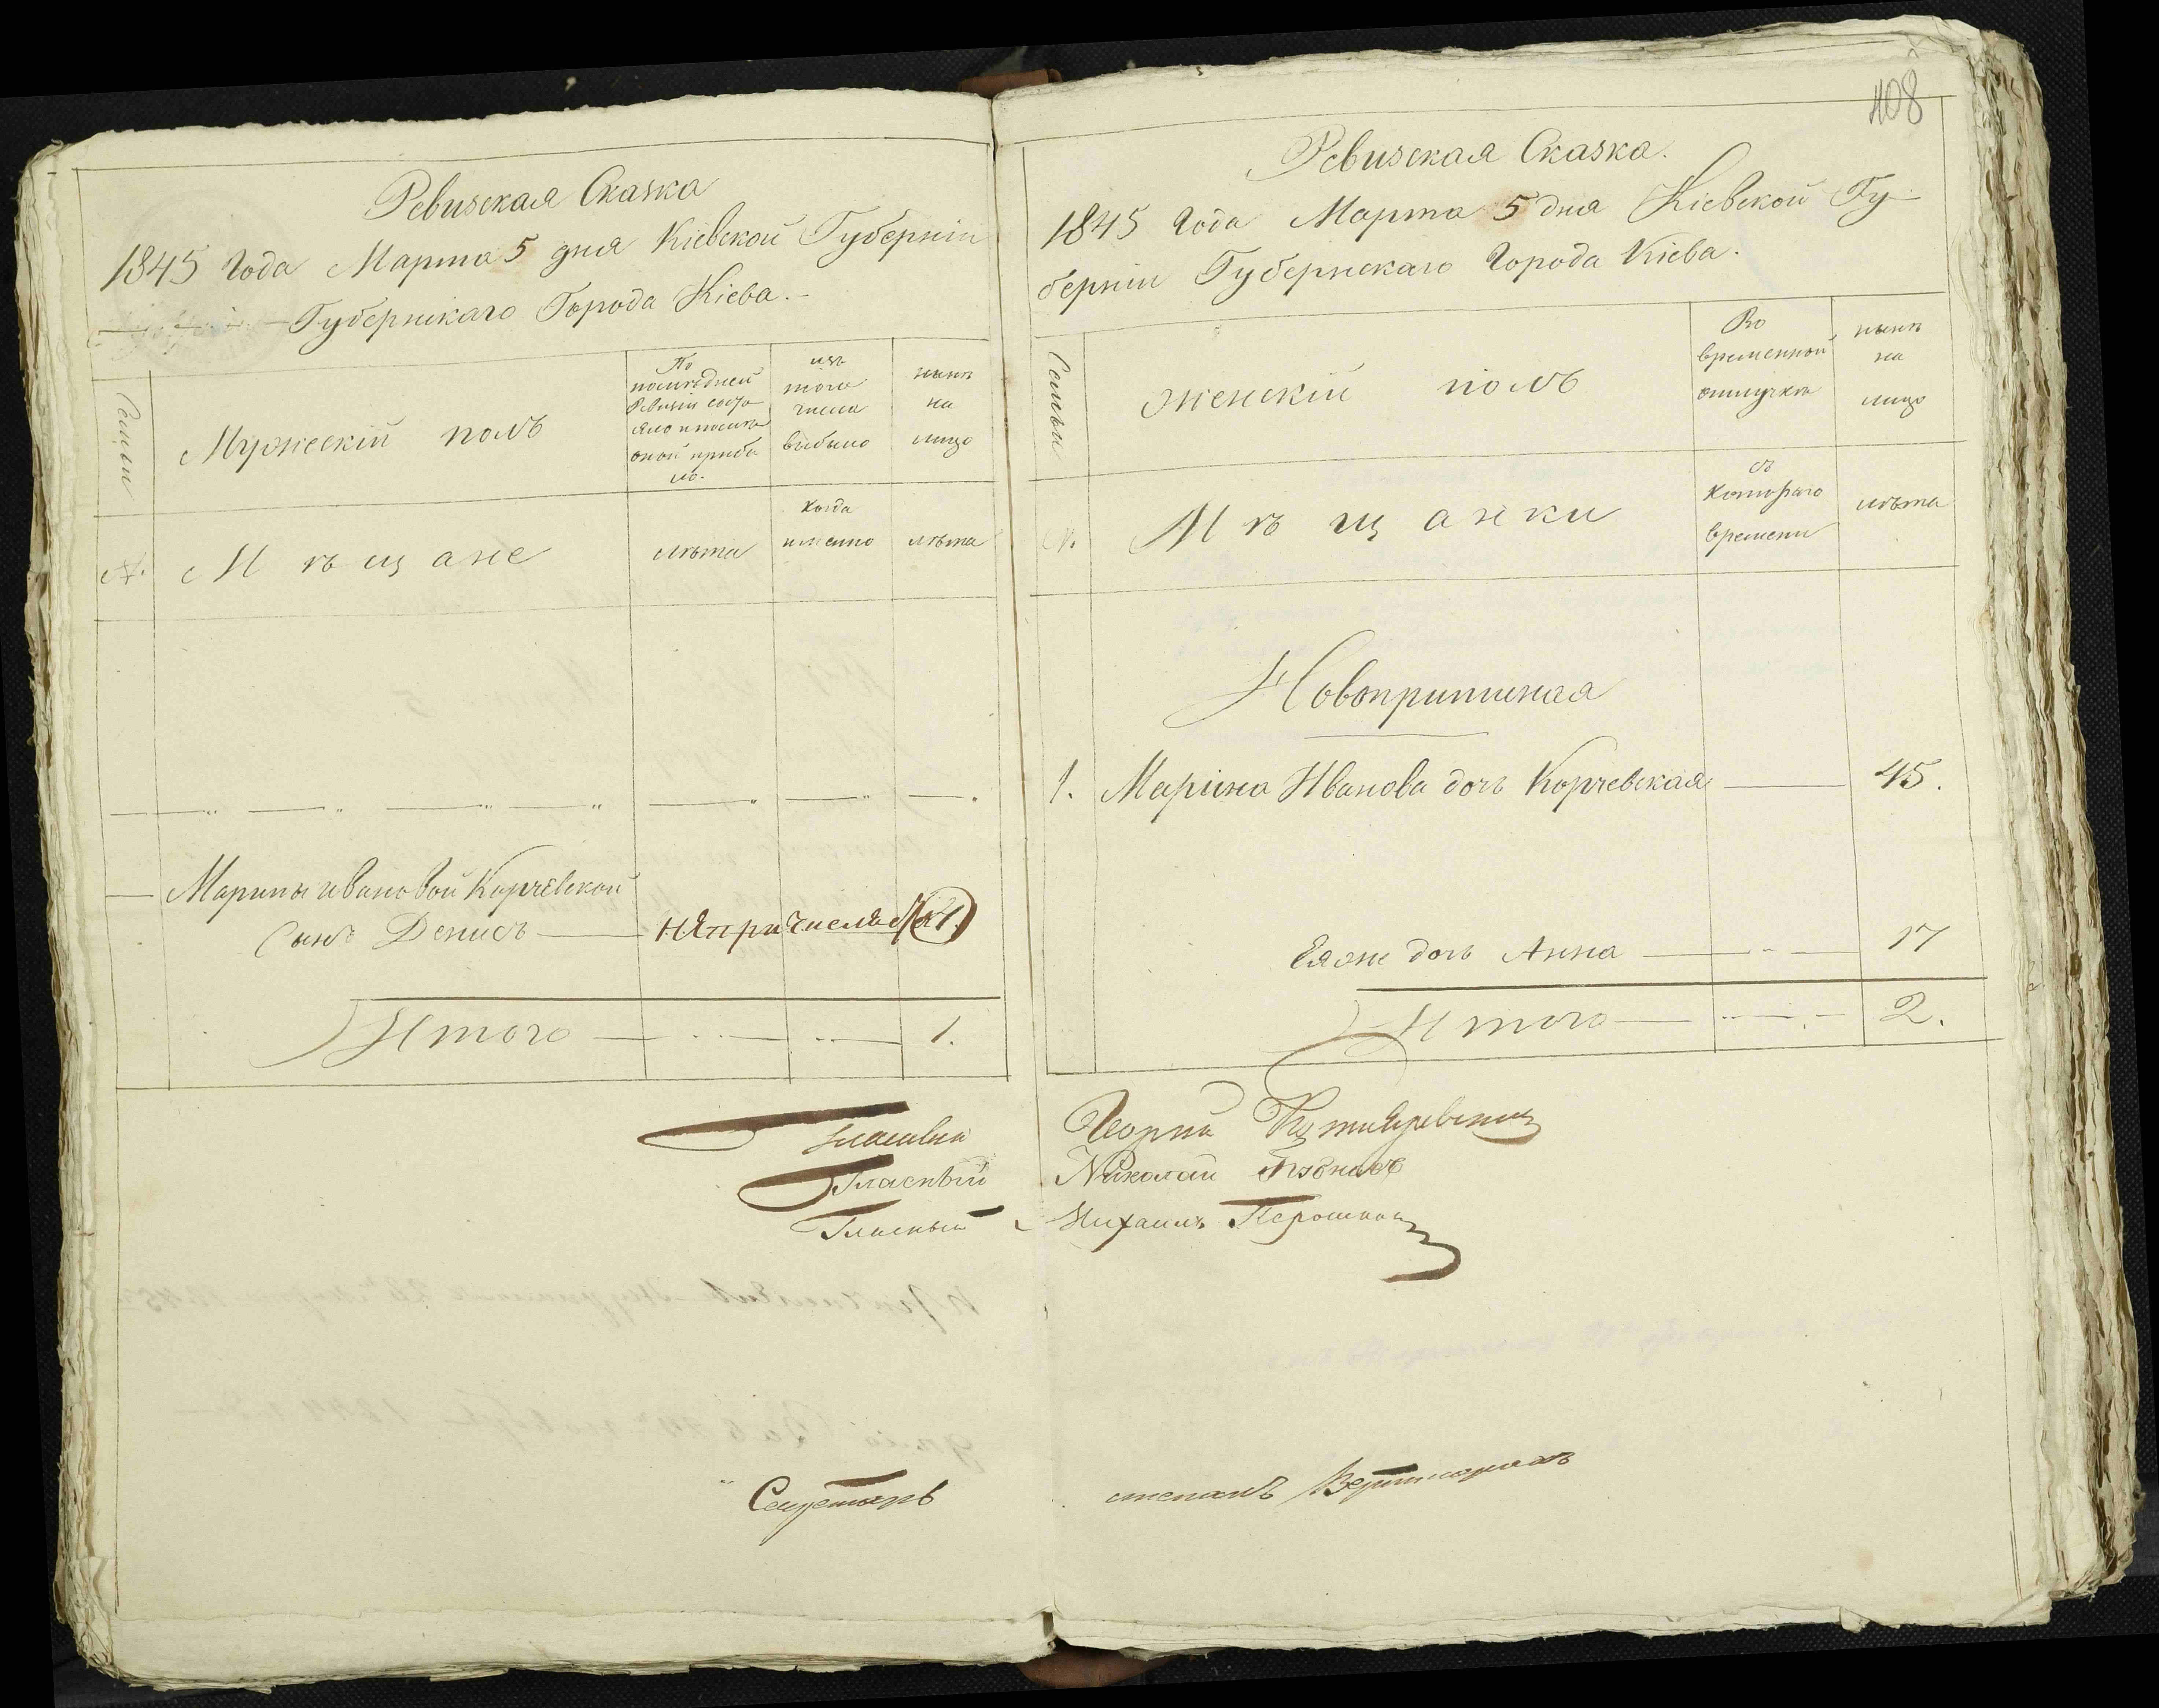 Ревизская Сказка
1845 Года Марта 5 дня Кіевской Губерніи
Губернскаго Города Кіева.
Семьи
Мужескій полъ
По
последней
Ревизіи состо
яло и после
оной прибы
ло.
изъ
того
числа
выбыло
ныне
на
лицо
№.
Мѣщане
лѣта
когда
именно
лѣта
Марины Ивановой Корчевской
Сынъ Денисъ
Итого 1.
Гласный
Гласный
Секретарь
408
Ревизская Сказка.
1845 Года Марта 5 дня Кіевской Гу-
берніи Губернскаго Города Кіева.
Семьи
женскій полъ
Во
временной
отлучке
ныне
на
лицо
№.
Мѣщанки
съ
котораго
времени
лѣта
Новоприписная
1. Марина Иванова дочь Корчевская 45.
Ея же дочь Анна 17
Итого 2.
Георгій
Николай
Михаилъ
степанъ